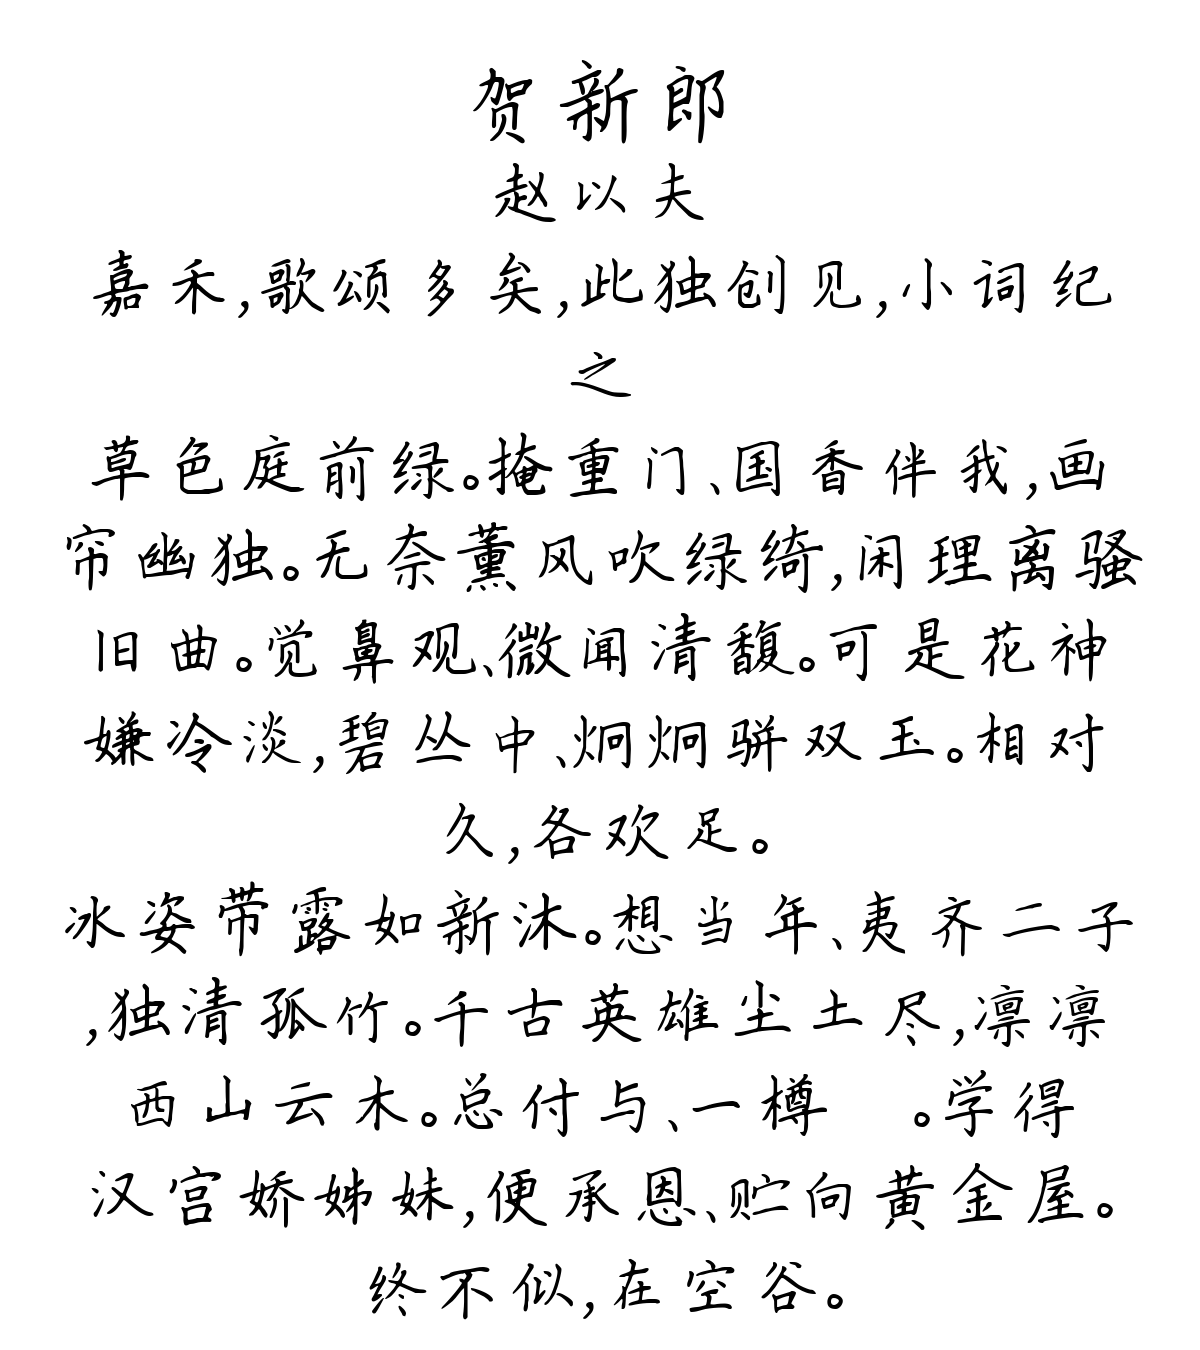 贺新郎
赵以夫
嘉禾,歌颂多矣,此独创见,小词纪
之
草色庭前绿。掩重门、国香伴我,画
帘幽独。无奈薰风吹绿绮,闲理离骚
旧曲。觉鼻观、微闻清馥。可是花神
嫌冷淡,碧丛中、炯炯骈双玉。相对
久,各欢足。
冰姿带露如新沐。想当年、夷齐二子
,独清孤竹。千古英雄尘土尽,凛凛
西山云木。总付与、一樽 。学得
汉宫娇姊妹,便承恩、贮向黄金屋。
终不似,在空谷。